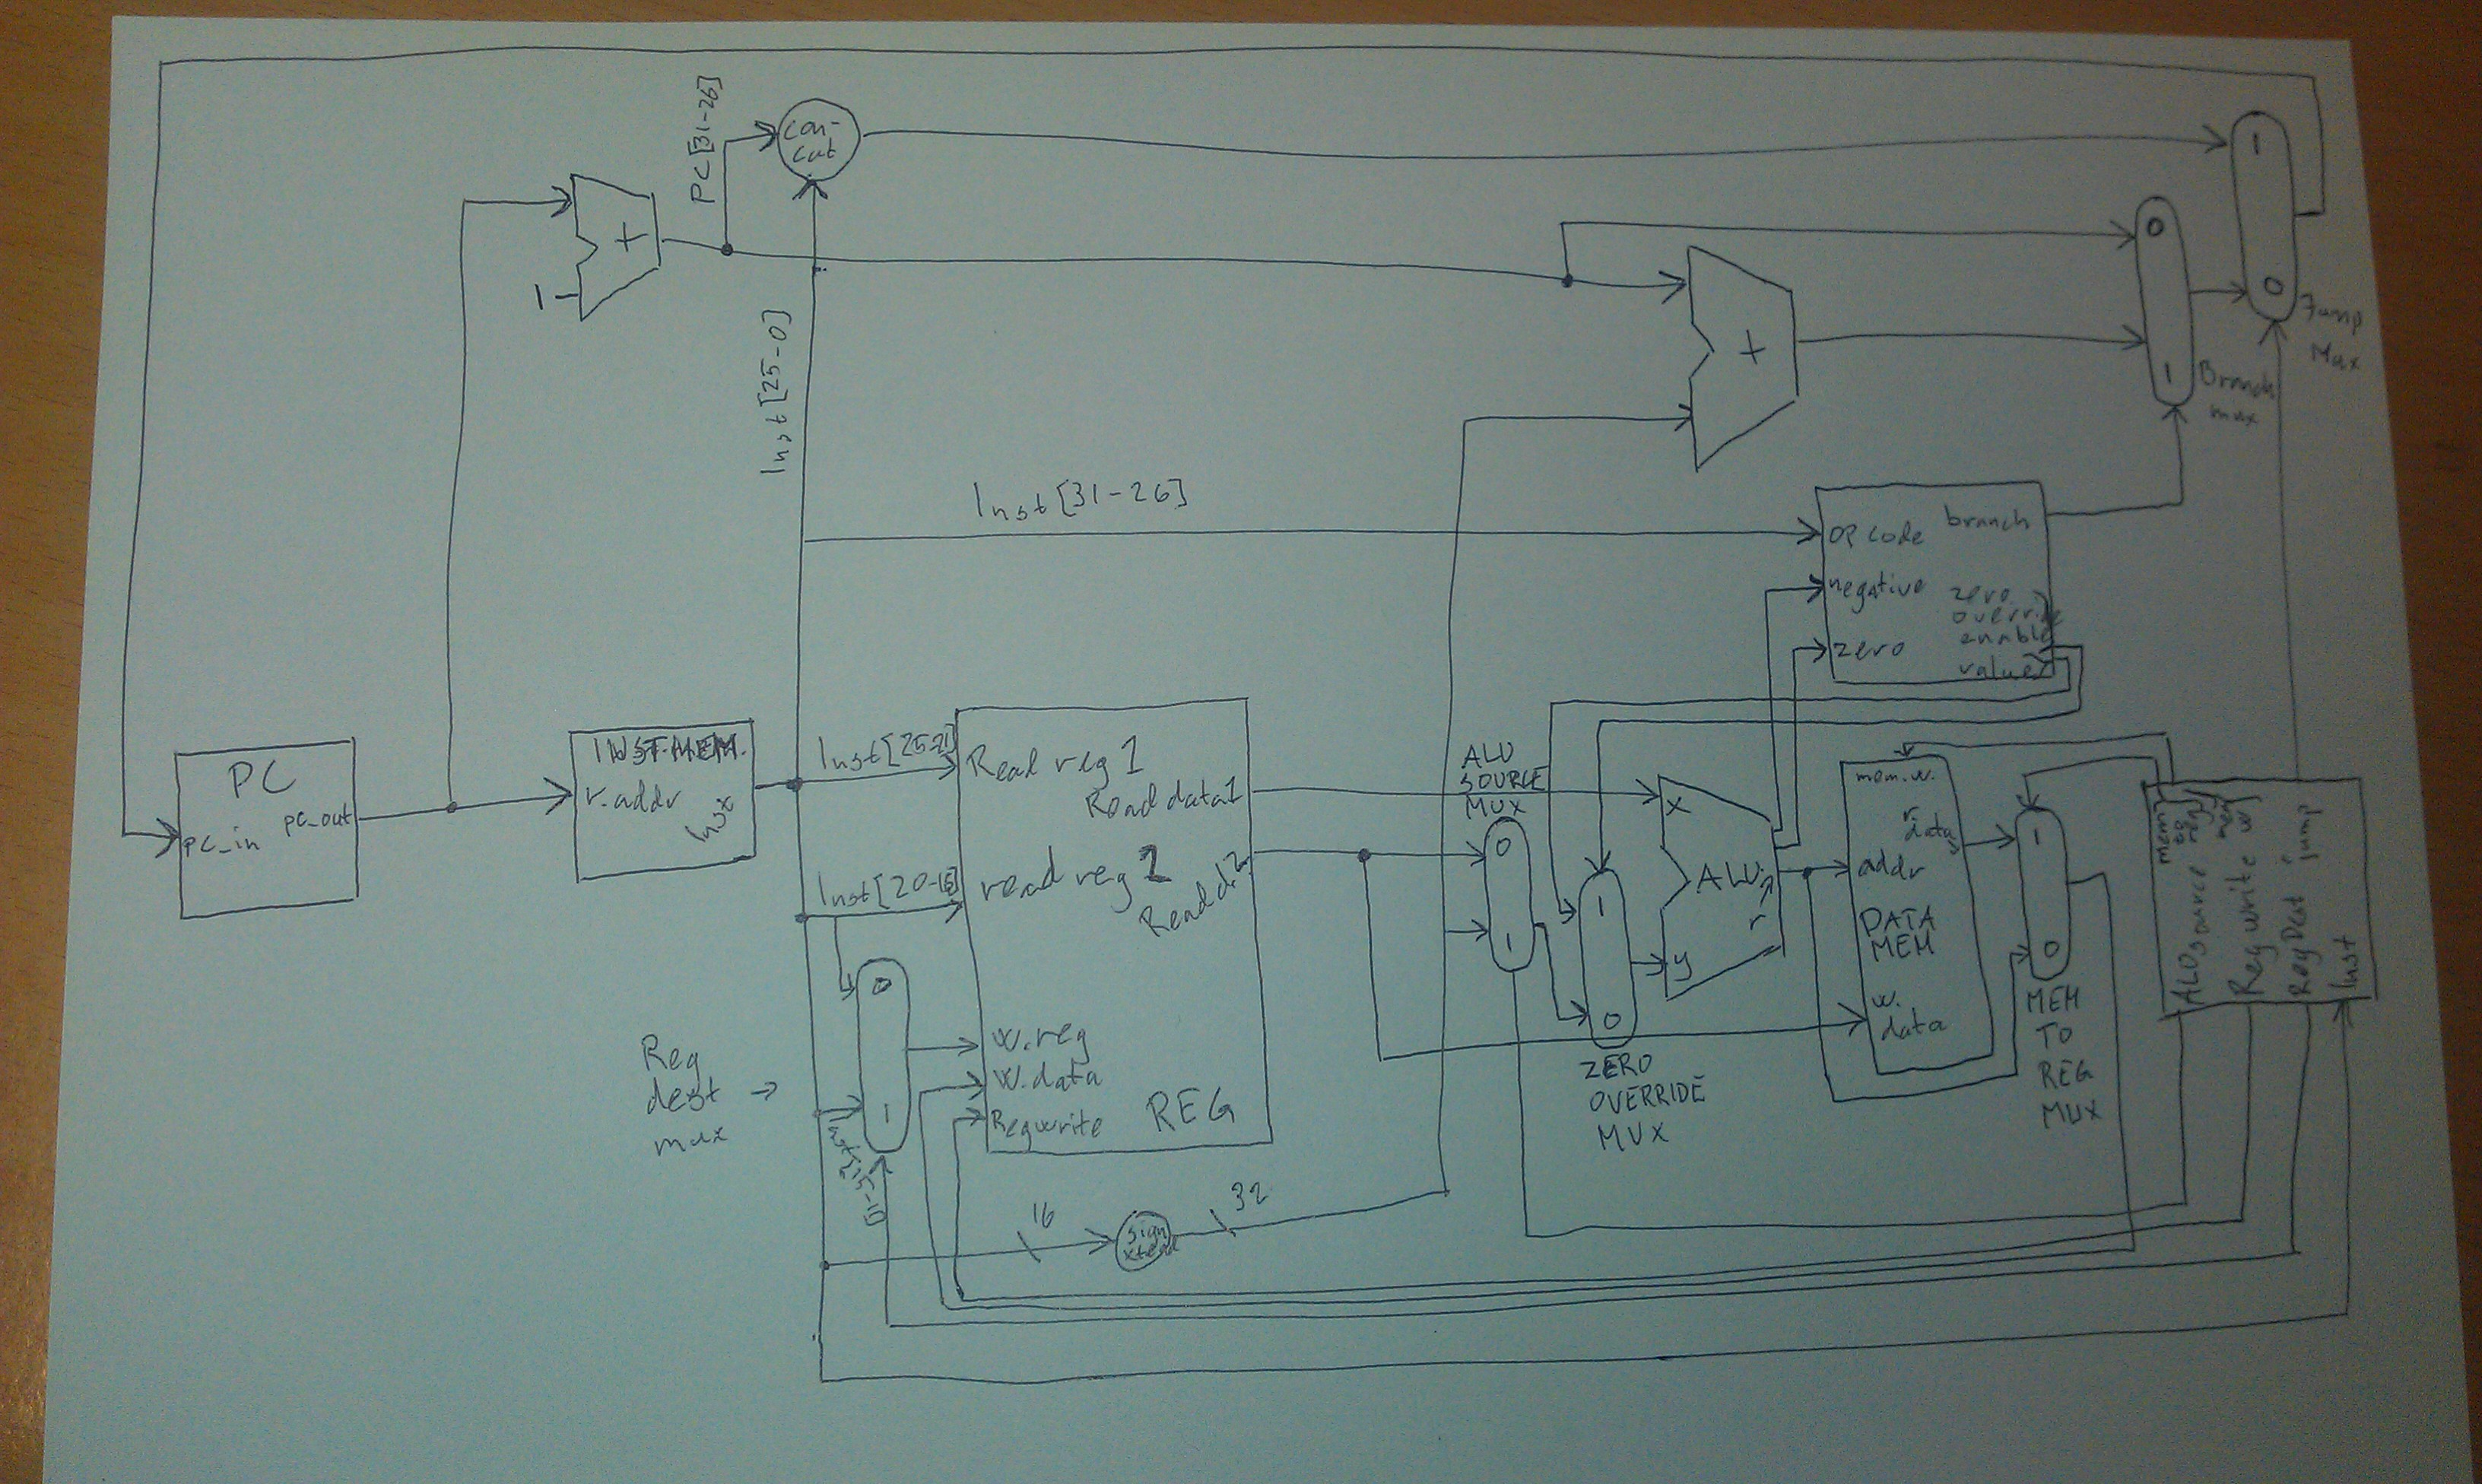 PC[31-26]
con-
cat
+
1
Inst[25-0]
+
0
1
Branch
mux
1
0
Jump
Mux
Inst[31-26]
OP code
branch
negative
zero
override
enable
value
zero
PC
pc_in
pc_out
INST.MEM.
r.addr
Inst[25-21]
Inst[20-16]
Read reg 1
Read data1
read reg 2
Read d.2
w.reg
w.data
Regwrite
REG
Reg
dest →
mux
0
1
Inst[15-11]
16
sign
xtend
32
ALU
SOURCE
MUX
0
1
1
0
ZERO
OVERRIDE
MUX
x
ALU
r
y
mem.w.
r.
data
addr
DATA
MEM
w.
data
1
0
MEM
TO
REG
MUX
ALUsource
Reg write
RegDest
jump
Inst